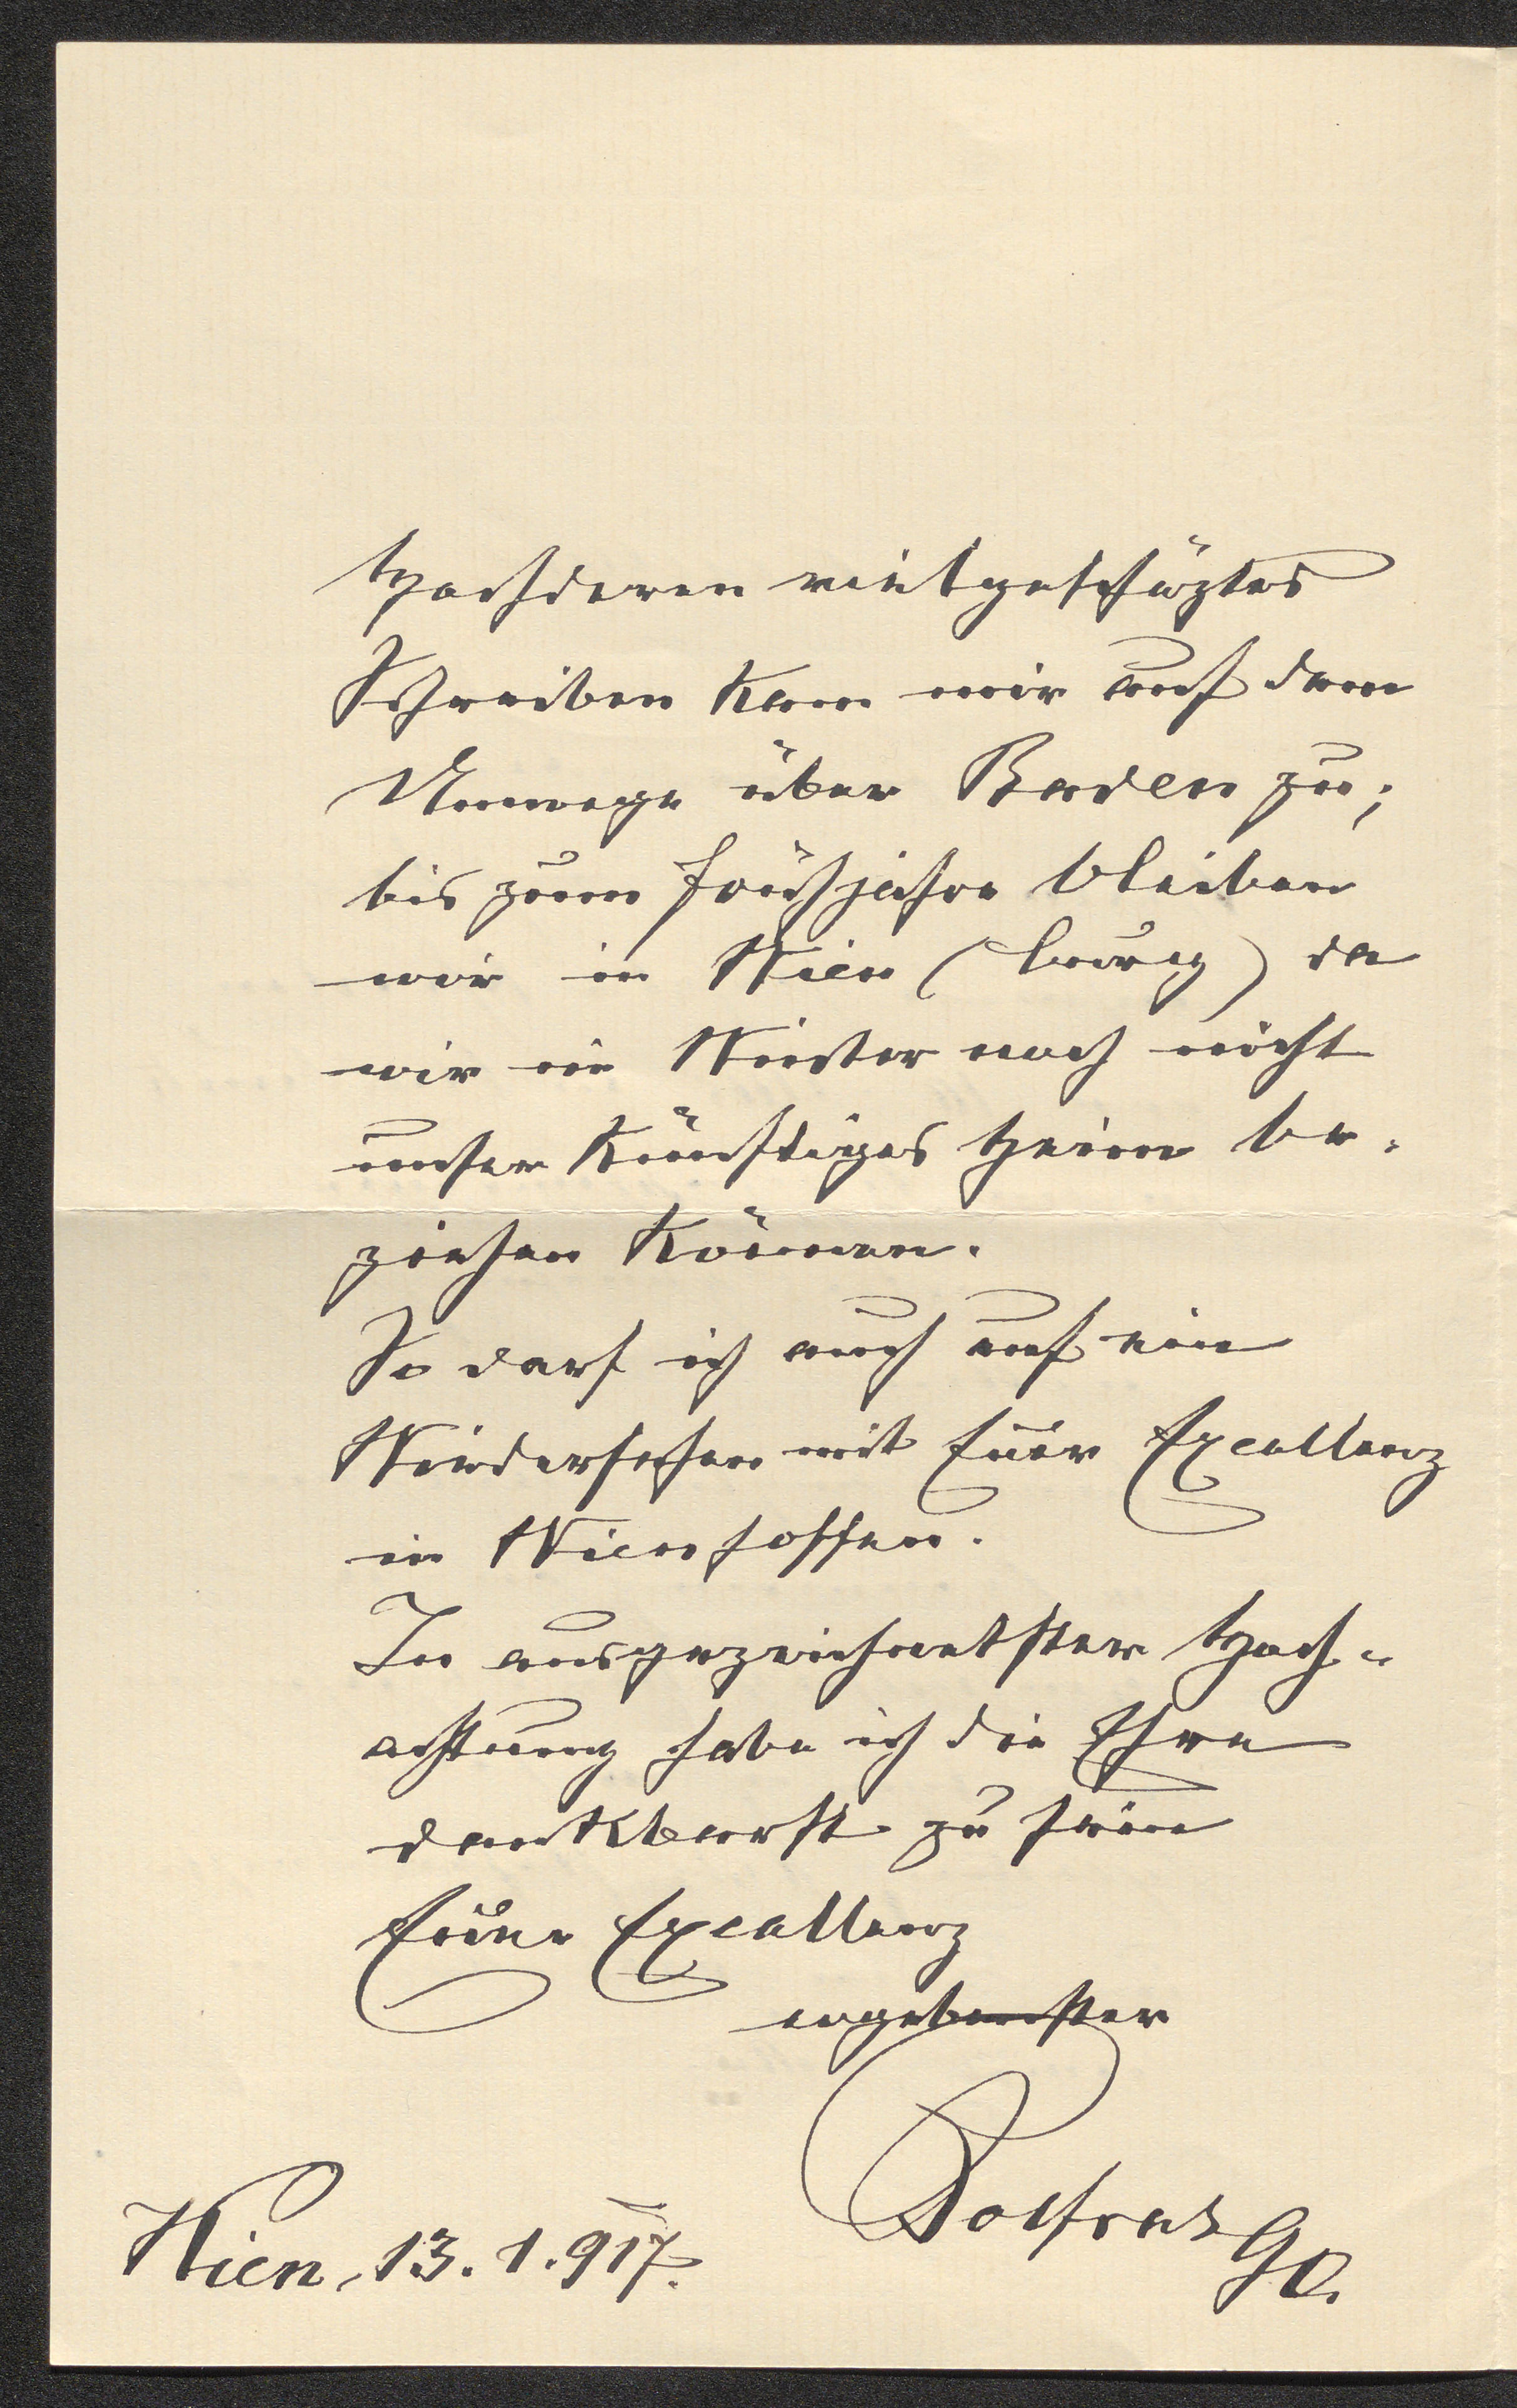 Hochderen vielgeschäztes
Schreiben kam mir auf dem
Umwege über Baden zu;
bis zum Frühjahre bleiben
wir in Wien (Burg) da
wir im Winter noch nicht
unser künftiges Heim be-
ziehen können.
So darf ich auch auf ein
Wiedersehen mit Euer Excellenz
in Wien hoffen.
In ausgezeichnetster Hoch-
achtung habe ich die Ehre
dankbarst zu sein
Euer Excellenz
ergebenster
Wien, 13. 1. 917.